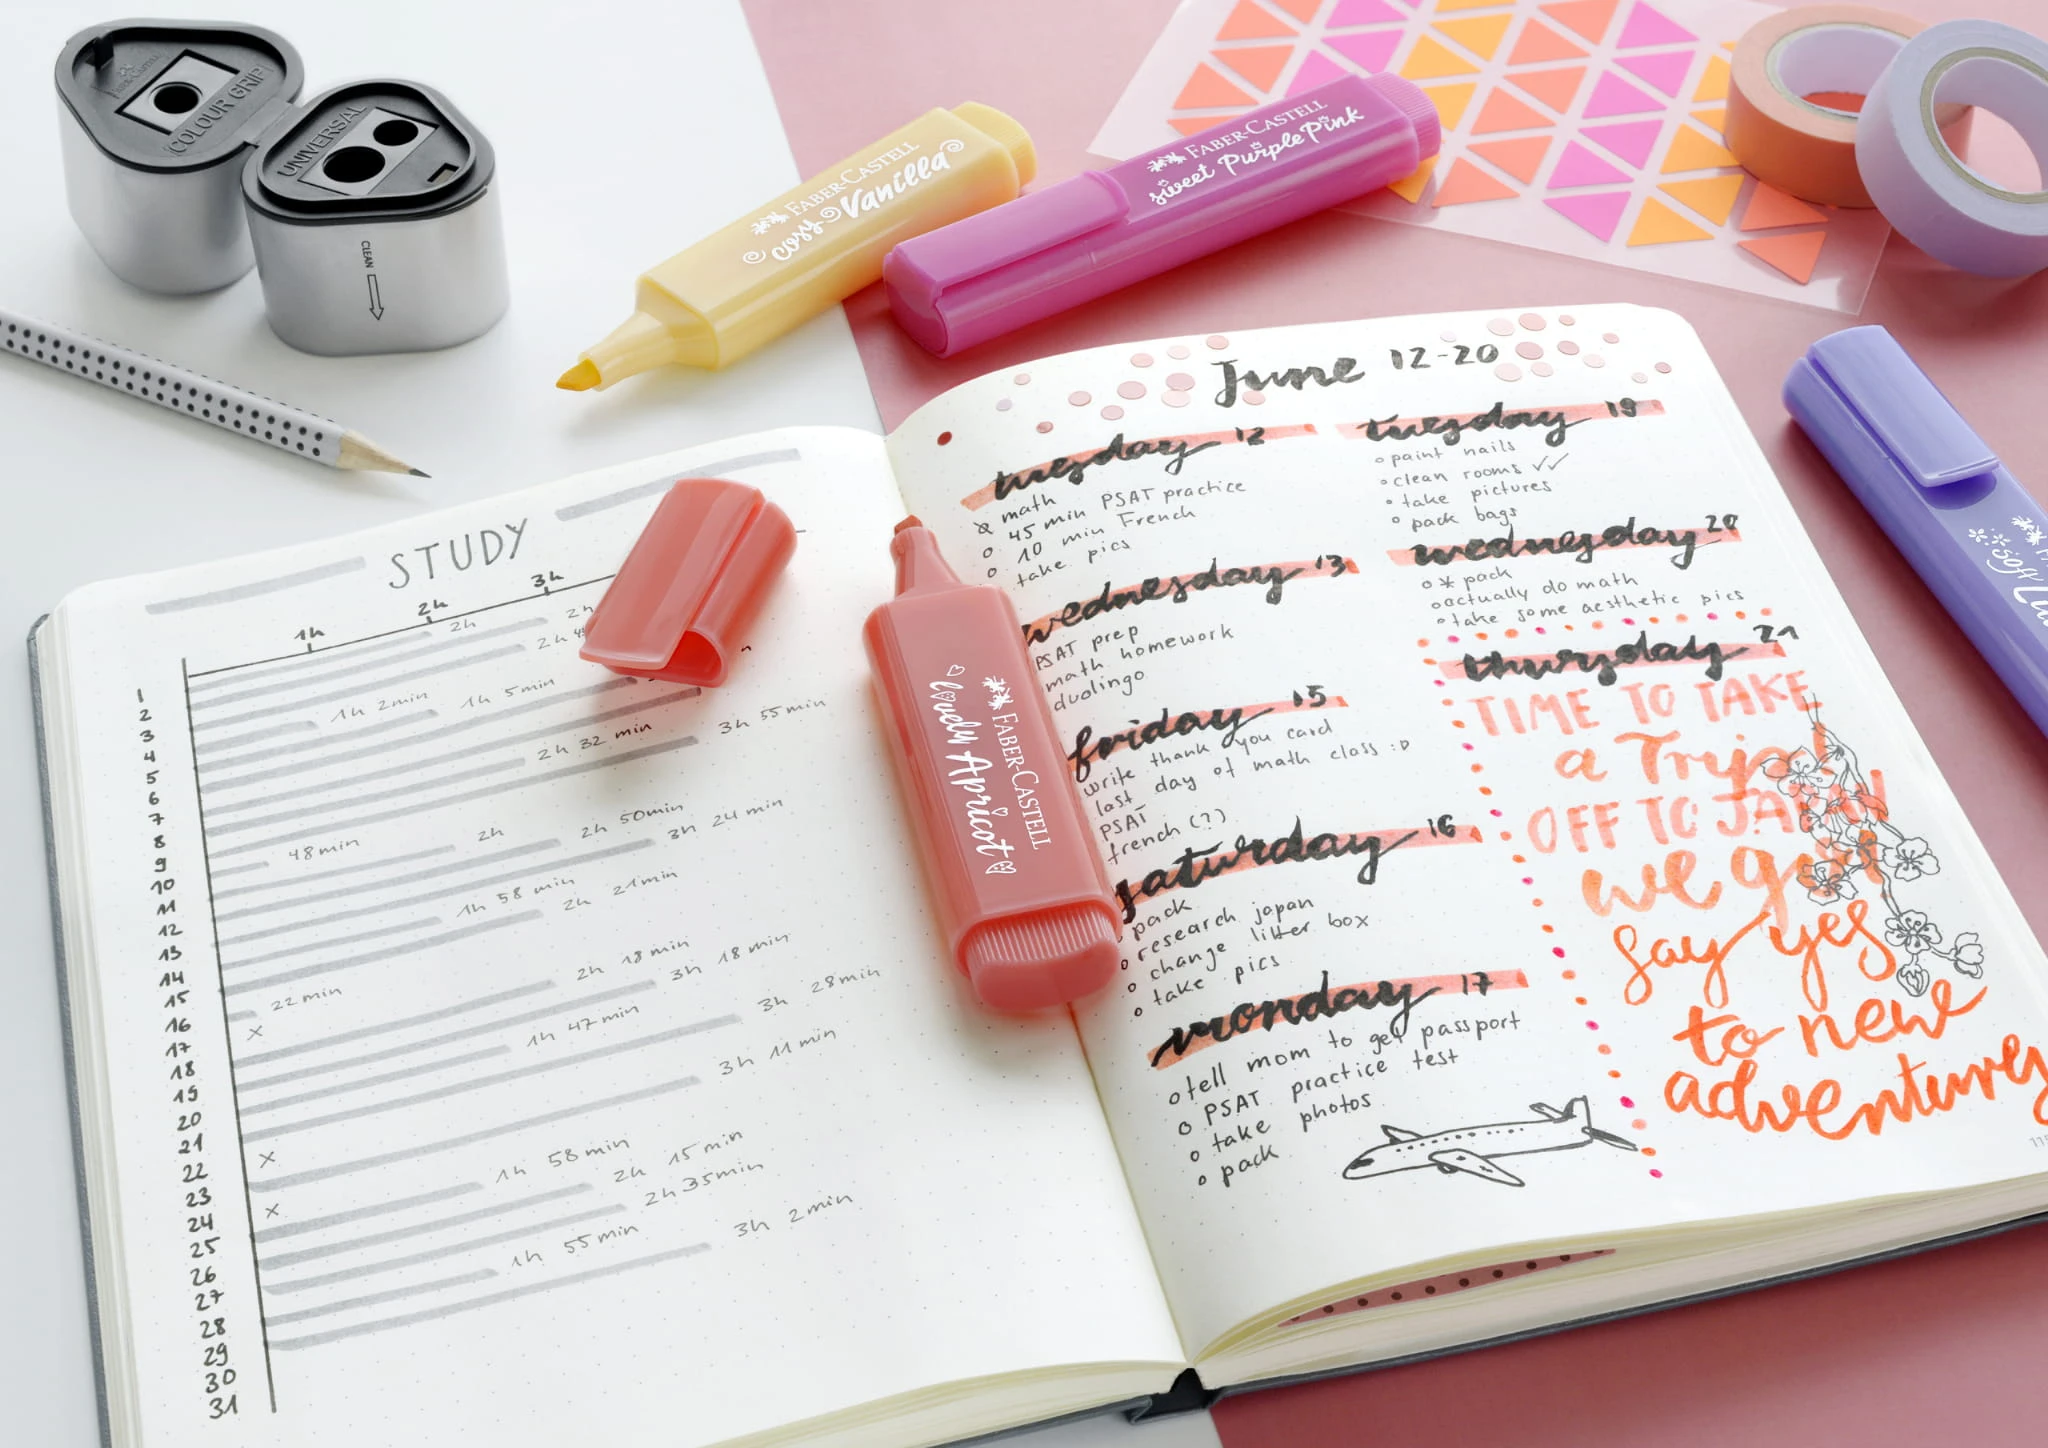 COLOUR GRIP
UNIVERSAL
CLEAN
FABER-CASTELL
cosy Vanilla
FABER-CASTELL
sweet PurplePink
FABER-CASTELL
lovely Apricot
soft
STUDY
1h 2h 3h
1
2
3
4
5
6
7
8
9
10
11
12
13
14
15
16
17
18
19
20
21
22
23
24
25
26
27
28
29
30
31
2h
2h
2h
1h 2min
1h 5min
3h 55min
2h 32 min
48min
2h
2h 50min
3h 24 min
1h 58 min
2h 21min
22min
2h 18min
3h 18min
x
1h 47min
3h 28min
3h 11min
x
1h 58min
2h 15min
x
2h 35min
1h 55min
3h 2min
June 12-20
tuesday 12
math
45 min PSAT practice
10 min French
take pics
wednesday 13
PSAT prep
math homework
duolingo
friday 15
write thank you card
last day of math class :D
PSAT
french (?)
saturday 16
pack
research japan
change litter box
take pics
monday 17
tell mom to get passport
PSAT practice test
take photos
pack
tuesday 19
paint nails
clean rooms ✓✓
take pictures
pack bags
wednesday 20
* pack
actually do math
take some aesthetic pics
thursday 21
TIME TO TAKE
a Trip!
OFF TO JAPAN
we go
say yes
to new
adventures